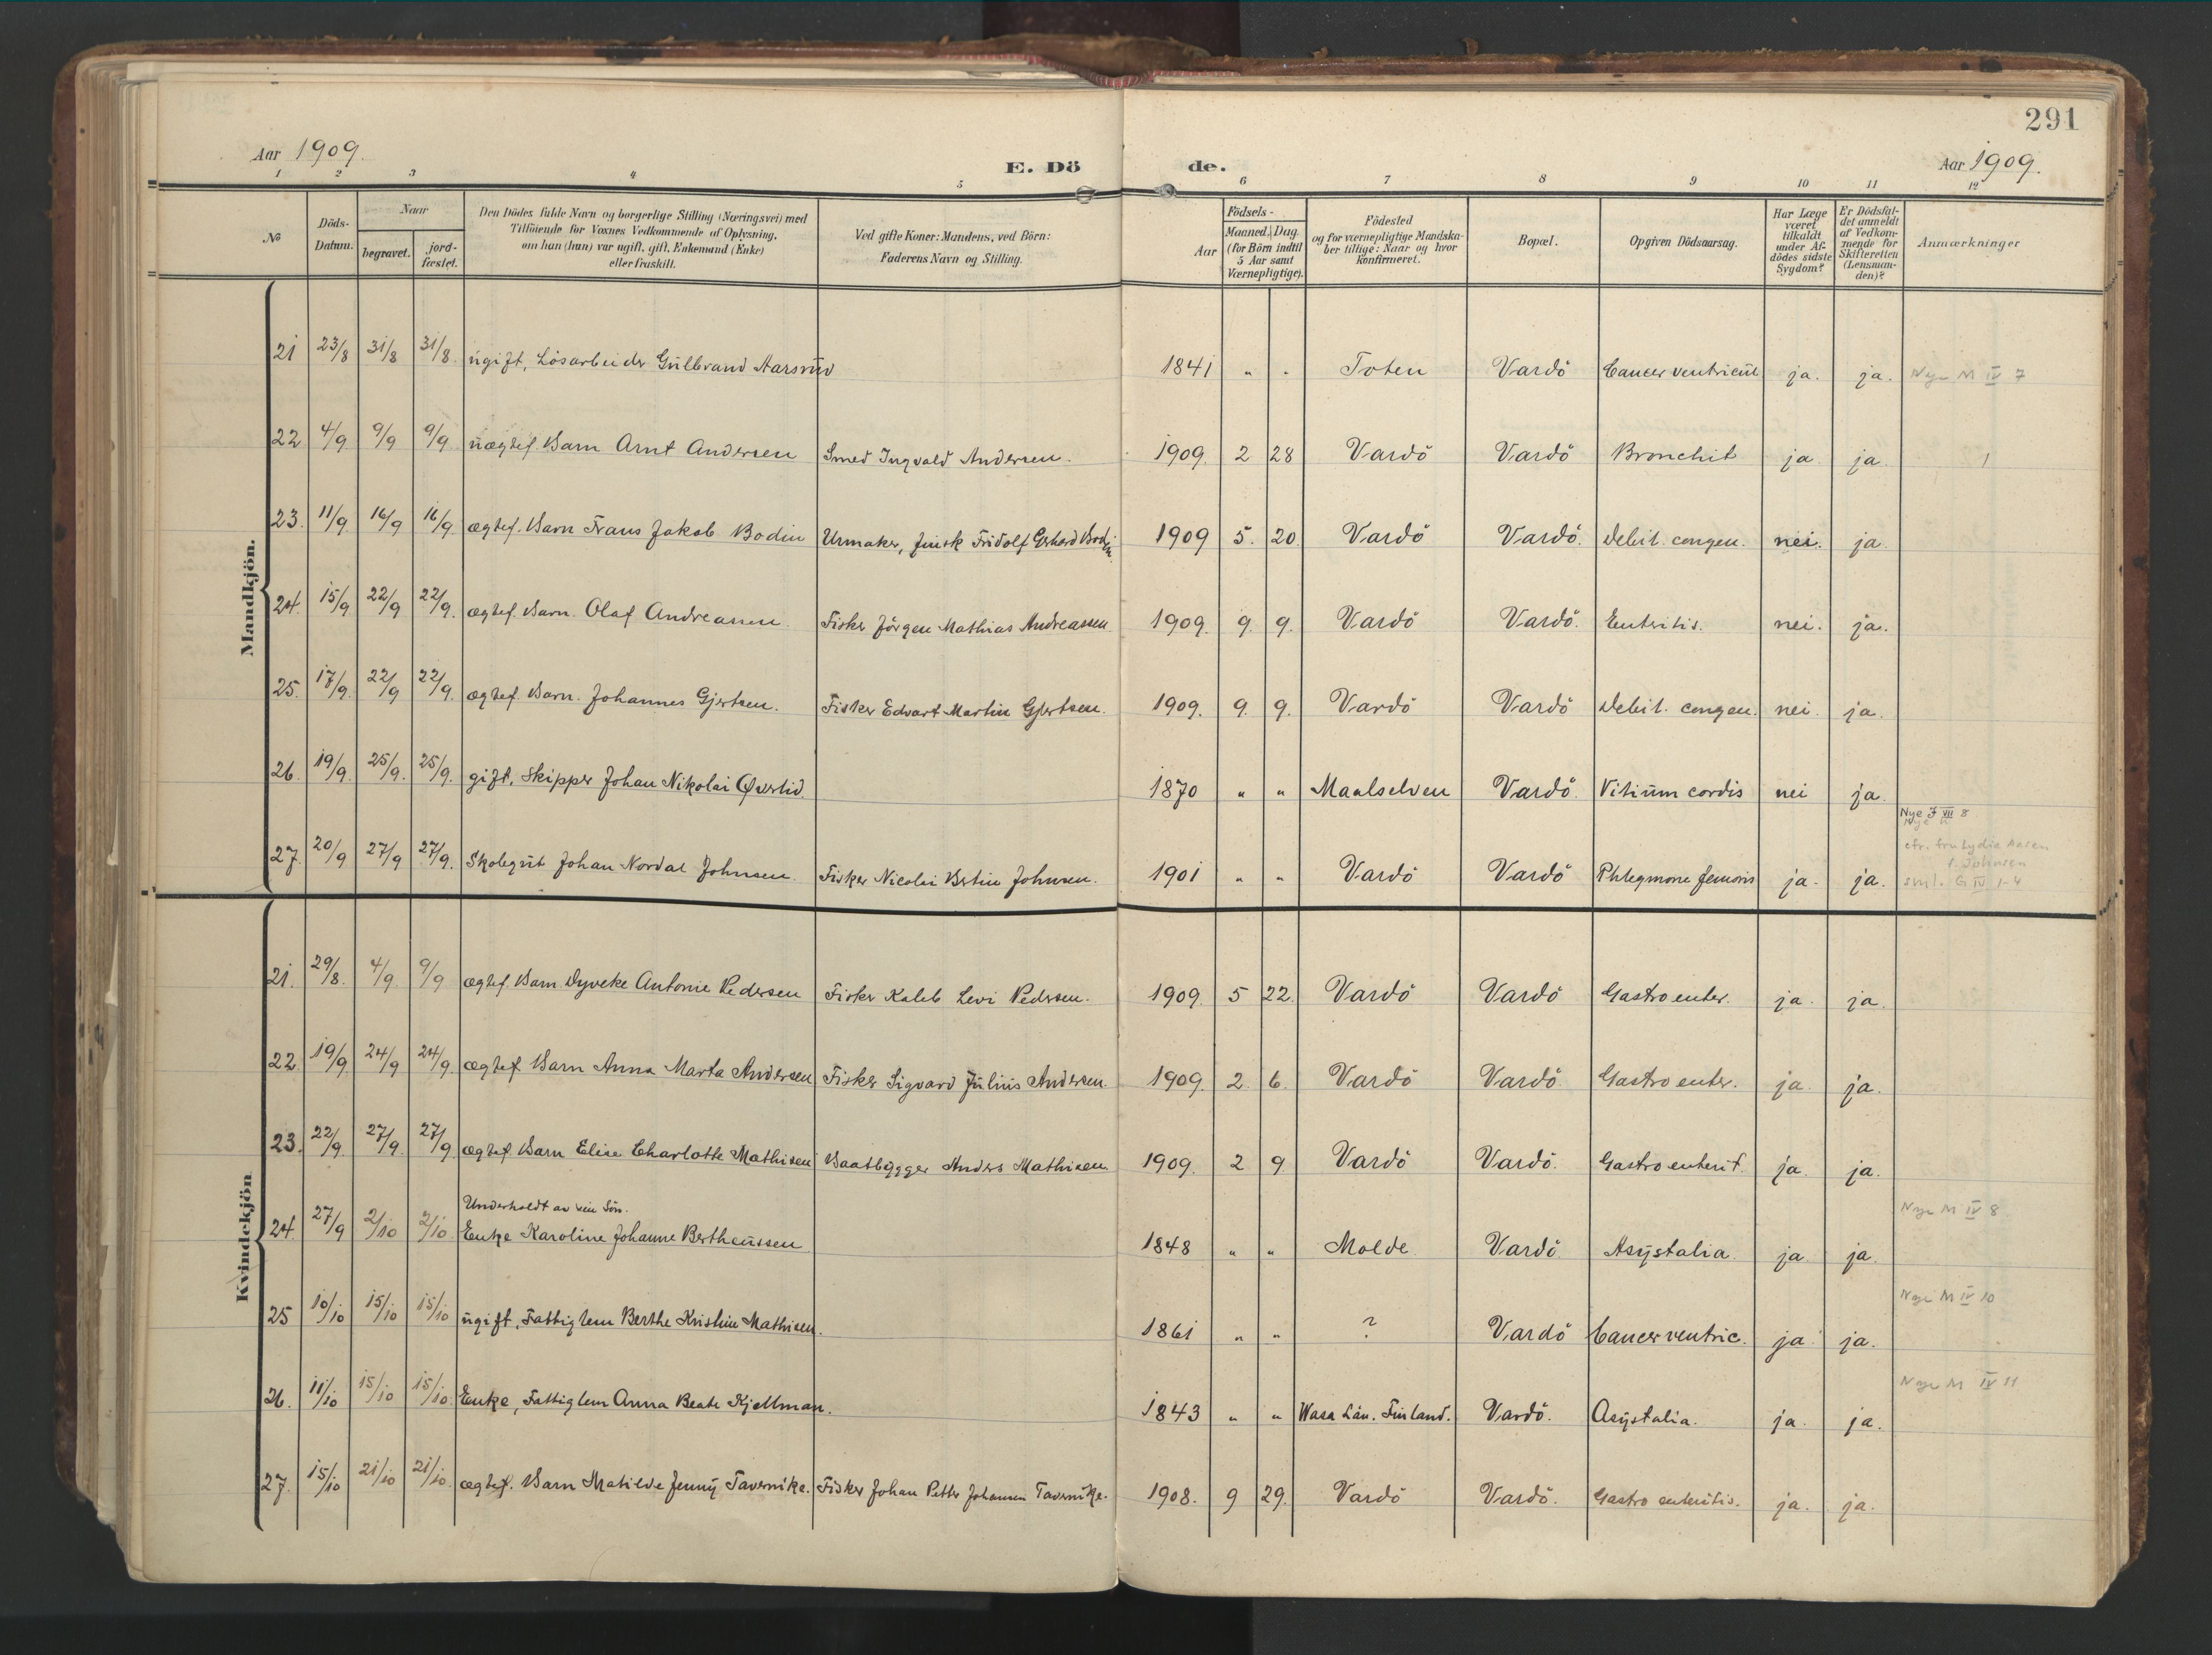 291
Aar 1909.
E. Dö de.
Aar 1909.
1 2 3 4 5 6 7 8 9 10 11 12
No
Döds-Datum.
Naar
begravet.
jord-fæstet.
Den Dödes fulde Navn og borgerlige Stilling (Næringsvei) med
Tilföiende for Voxnes Vedkommende af Oplysning,
om han (hun) var ugift, gift, Enkemand (Enke)
eller fraskilt.
Ved gifte Koner: Mandens, ved Börn:
Faderens Navn og Stilling.
Födsels-
Aar
Maaned. Dag.
(for Börn indtil
5 Aar samt
Værnepligtige).
Födested
og for værnepligtige Mandska-
ber tillige: Naar og hvor
konfirmeret.
Bopæl.
Opgiven Dödsaarsag.
Har Læge
været
tilkaldt
under Af-
dödes sidste
Sygdom?
Er Dödsfal-
det anmeldt
af Vedkom-
mende for
Skifteretten
(Lensman-
den)?
Anmærkninger
Mandkjön.
21 23/8 31/8 31/8. ugift, Lösarbeider Gulbrand Aarsrud 1841 " " Toten Vardö Cancer ventricul ja. ja. Nye M IV 7
22 4/9 9/9 9/9. uægtef. Barn Arnt Andersen Smed Ingvald Andersen. 1909. 2 28 Vardö Vardö Bronchit ja ja. 1
23. 11/9. 16/9 16/9. ægtef. Barn Frans Jakob Bodin Urmaker, finsk Fridolf Gerhard Bodin. 1909 5. 20. Vardö Vardö. Debil. congen. nei. ja.
24. 15/9 22/9 22/9. ægtef. Barn. Olaf Andreassen. Fisker Jörgen Mathias Andreassen. 1909. 9. 9. Vardö Vardö. Enteritis. nei. ja.
25. 17/9. 22/9 22/9. ægtef. Barn. Johannes Gjertsen. Fisker Edvart Martin Gjertsen. 1909. 9. 9. Vardö Vardö Debil. congen. nei. ja.
26. 19/9. 25/9. 25/9. gift, Skipper Johan Nikolai Qverlid. 1870 " " Maalselven Vardö. Vitium cordis nei ja.
27. 20/9 27/9 27/9. Skolegut Johan Nordal Johnsen. Fisker Nicolai Bertin Johnsen. 1901 " " Vardö Vardö Phlegmone femoris ja. ja.
Nye J VII 8
cfr. fru Lydia Aasen
f. Johnsen
sml. G IV 1-4
Kvindekjön
21. 29/8. 4/9 9/9 ægtef. Barn Dyveke Antonie Pedersen Fisker Kaleb Levi Pedersen. 1909. 5 22. Vardö Vardö Gastroenter. ja. ja.
22. 19/9. 24/9 24/9. ægtef Barn Anna Marta Andersen Fisker Sigvard Julius Andersen. 1909. 2. 6. Vardö Vardö. Gastroenter. ja. ja.
23. 22/9. 27/9. 27/9. ægtef Barn Elise Charlotte Mathisen Baatbygger Anders Mathisen 1909. 2 9 Vardö Vardö. Gastroenterit. ja. ja.
Underholdt av sin Sön.
24. 27/9 2/10 2/10 Enke Karoline Johanne Bertheussen 1848 " " Molde. Vardö Asystalia. ja. ja. Nye M IV 8
25 10/10 15/10 15/10 ugift, Fattiglem Berthe Kristine Mathisen. 1861 " " ? Vardö Cancer ventric. ja ja. Nye M IV 10
26. 11/10 15/10 15/10. Enke, Fattiglem Anna Beate Kjellman. 1843 " " Wasa Län. Finland. Vardö. Asystalia. ja. ja. Nye M IV 11
27. 15/10 21/10 21/10. ægtef. Barn Matilde Jenny Tavernike. Fisker Johan Petter Johansen Tavernike. 1908. 9 29. Vardö Vardö. Gastro enteritis. ja. ja.